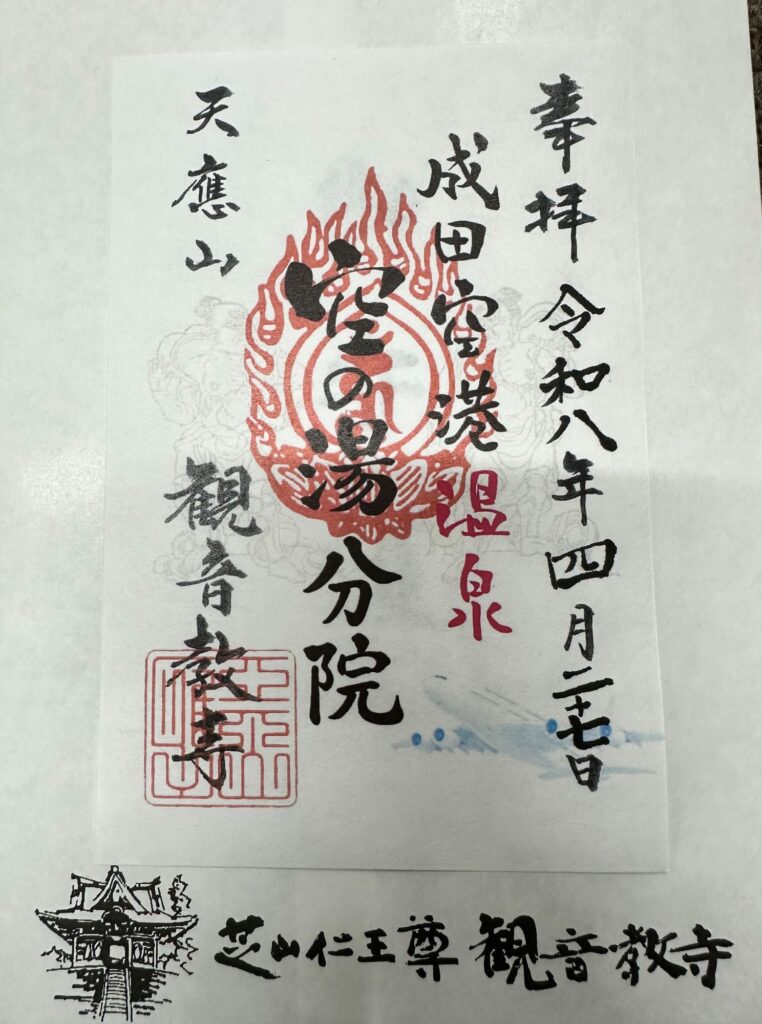 奉拝 令和八年四月二十七日
成田空港 温泉
空の湯分院
天應山 観音教寺
芝山仁王尊 観音教寺